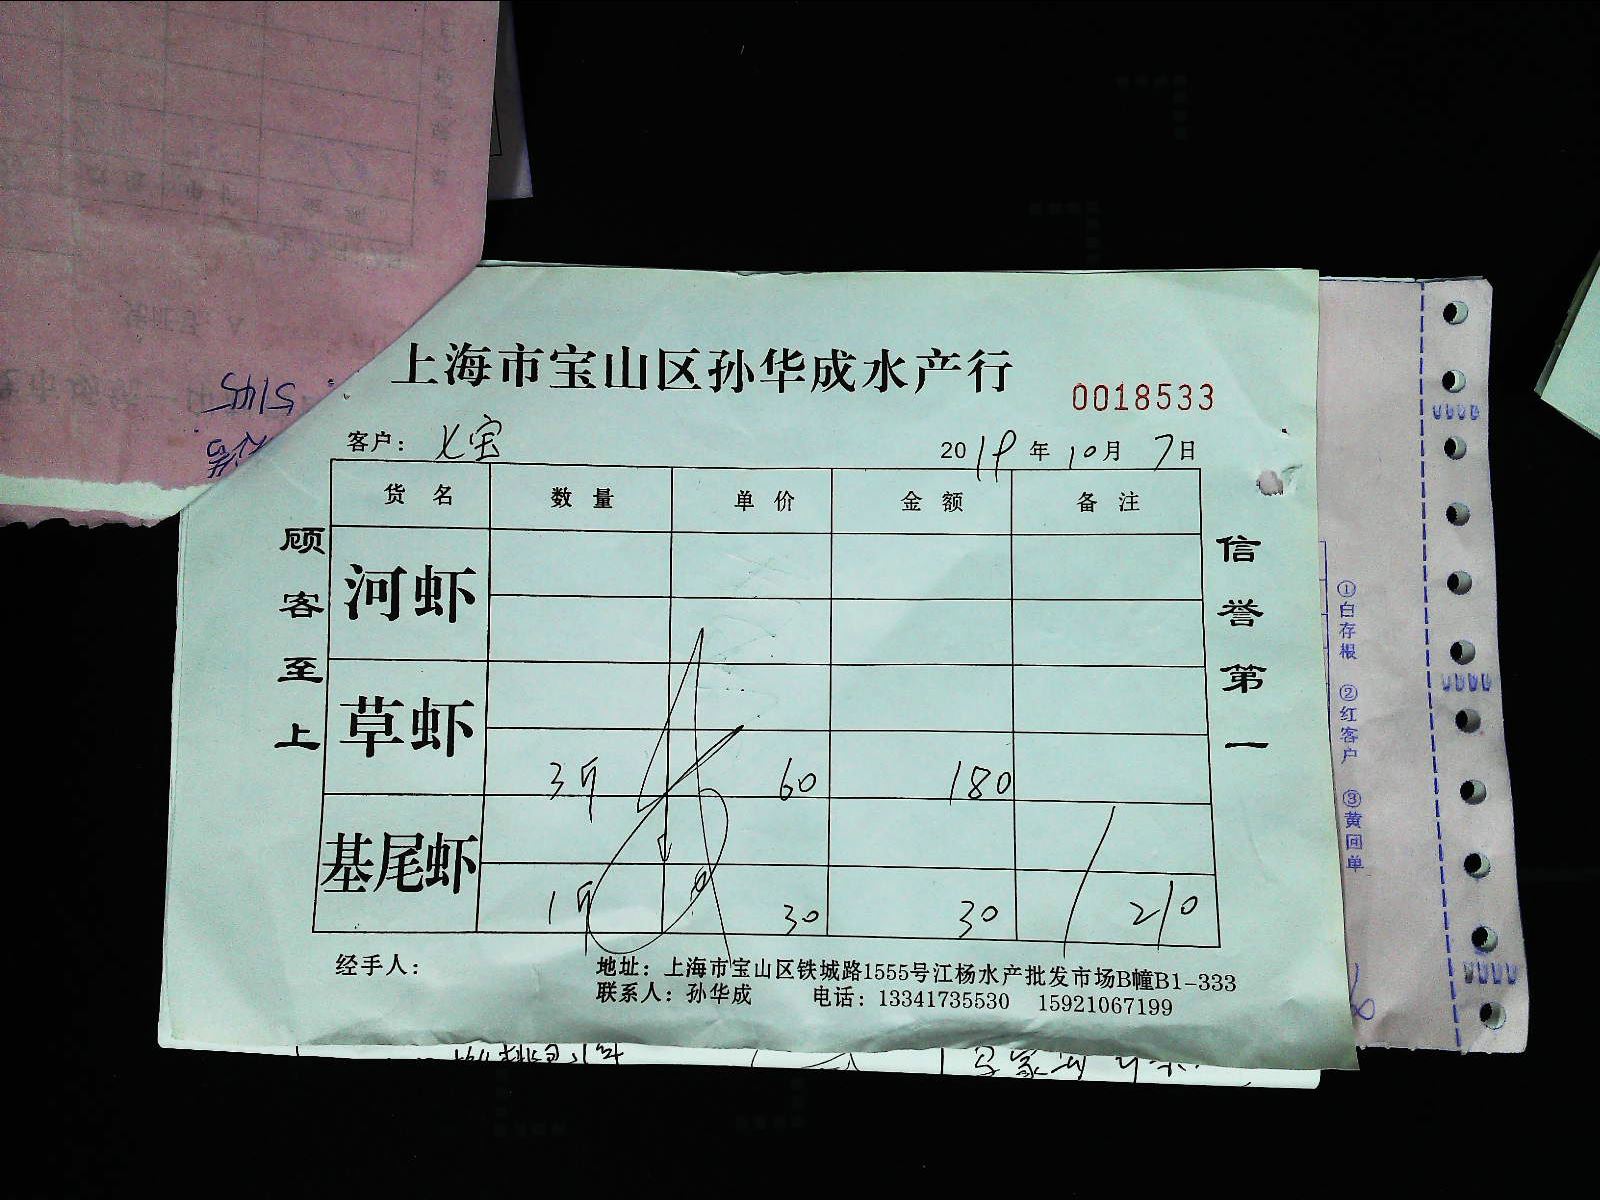 上海市宝山区孙华成水产行
0018533
客户： 七宝
2019年10月7日
货名 数量 单价 金额 备注
河虾
草虾
3斤 60 180
基尾虾
1斤 30 30 210
顾客至上
信誉第一
经手人：
地址：上海市宝山区铁城路1555号江杨水产批发市场B幢B1-333
联系人：孙华成 电话：13341735530 15921067199
①白存根 ②红客户 ③黄回单
5145